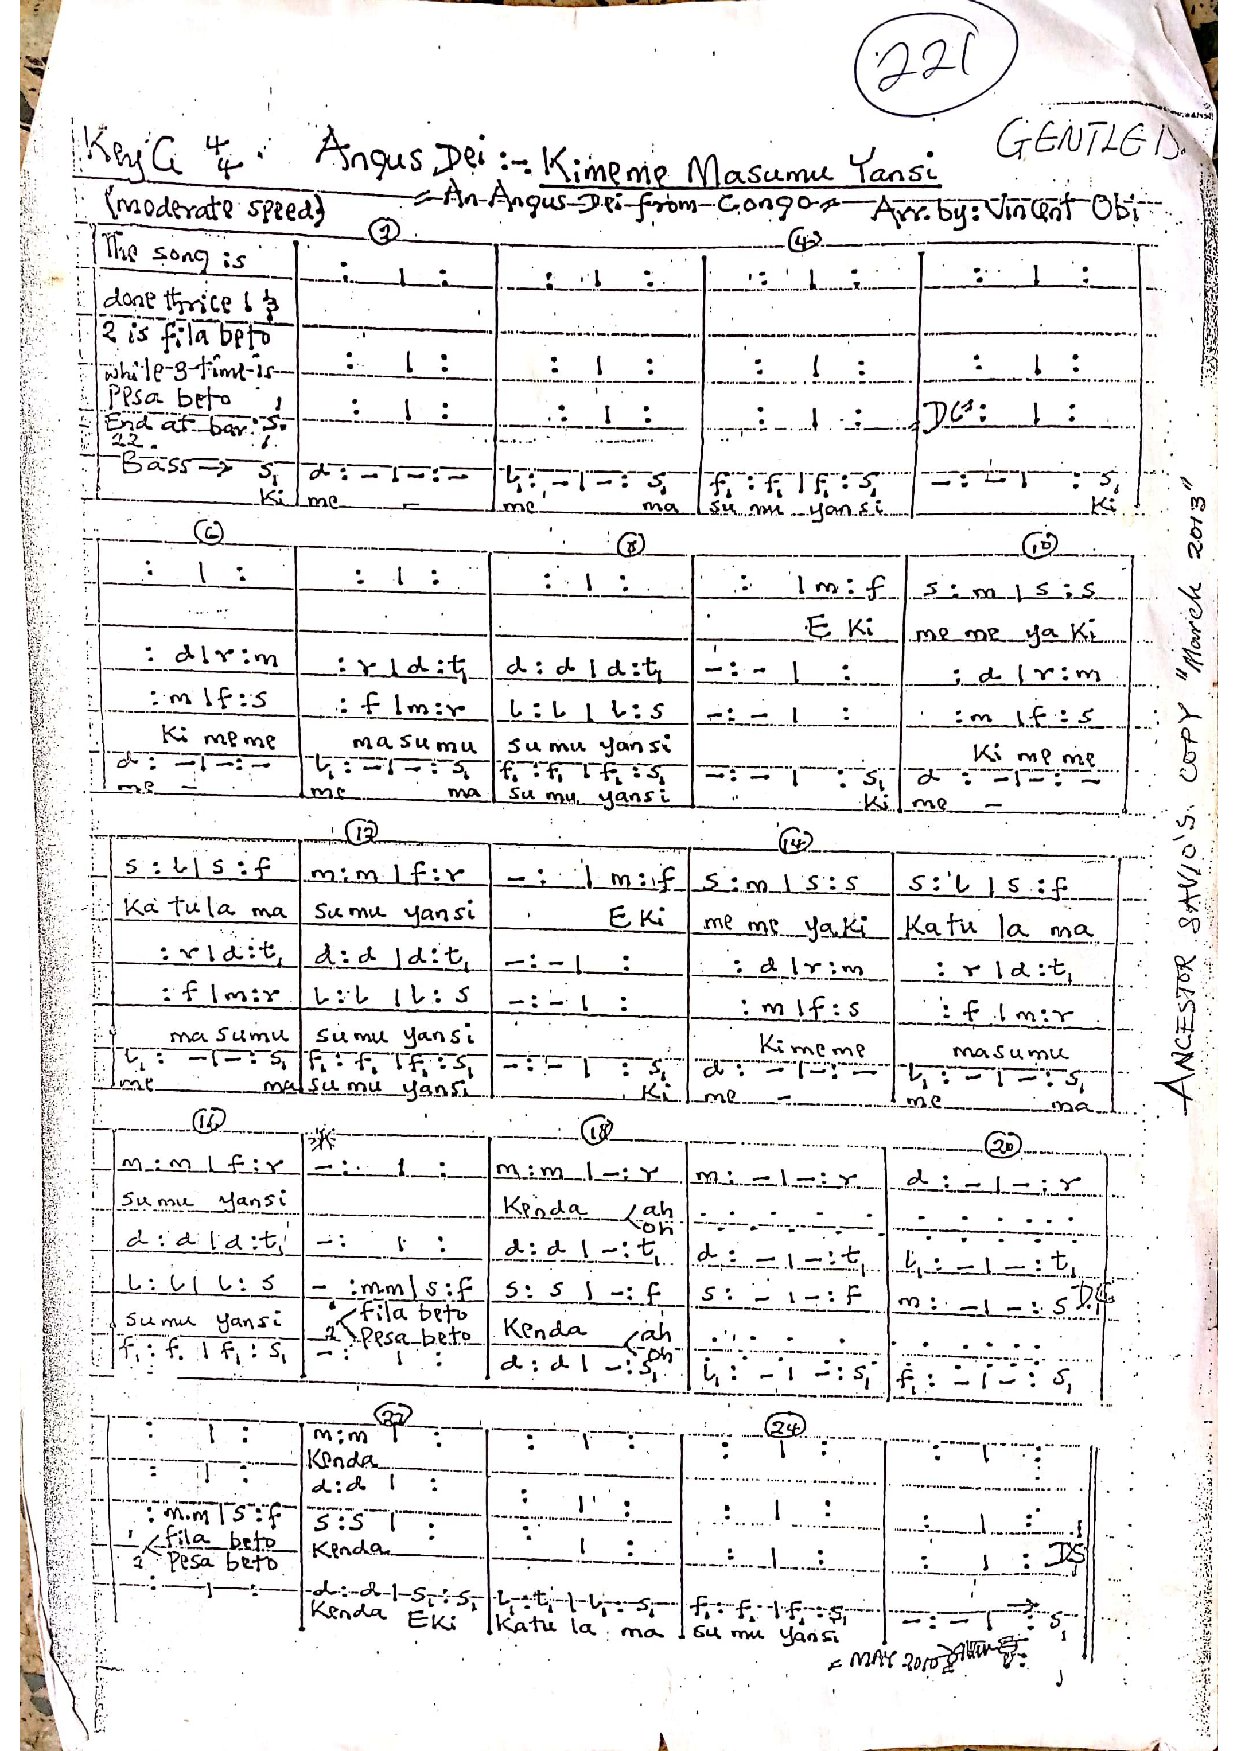 221
GENTLE D.
Key G 4/4. Angus Dei :- Kimeme Masumu Yansi
(moderate speed) = An Angus Dei from Congo = Arr. by: Vincent Obi
2 4
The song is : | : : | : : | : : | :
done thrice 1 &
2 is fila beto
while 3 time is : | : : | : : | : : | :
Pesa beto
End at bar : s. : | : : | : : | : D.C : | :
22.
Bass → s₁ d : – | – : – l₁ : – | – : s₁ f₁ : f₁ | f₁ : s₁ – : – | : s₁
Ki me – me ma su mu yansi Ki
6 8 10
: | : : | : : | : : | m : f s : m | s : s
E Ki me me ya Ki
: d | r : m : r | d : t₁ d : d | d : t₁ – : – | : : d | r : m
: m | f : s : f | m : r l : l | l : s – : – | : : m | f : s
Ki me me ma sumu sumu yansi Ki me me
d : – | – : – l₁ : – | – : s₁ f₁ : f₁ | f₁ : s₁ – : – | : s₁ d : – | – : –
me – me ma su mu yansi Ki me –
12 14
s : l | s : f m : m | f : r – : | m : f s : m | s : s s : l | s : f
Ka tula ma sumu yansi E Ki me me ya Ki Katu la ma
: r | d : t₁ d : d | d : t₁ – : – | : : d | r : m : r | d : t₁
: f | m : r l : l | l : s – : – | : : m | f : s : f | m : r
ma sumu sumu yansi Ki me me ma sumu
l₁ : – | – : s₁ f₁ : f₁ | f₁ : s₁ – : – | : s₁ d : – | – : – l₁ : – | – : s₁
me ma su mu yansi Ki me – me ma
16 18 20
m : m | f : r – : – | : m : m | – : r m : – | – : r d : – | – : r
sumu yansi Kenda ah
oh
d : d | d : t₁ – : | : d : d | – : t₁ d : – | – : t₁ l₁ : – | – : t₁
l : l | l : s – : mm | s : f s : s | – : f s : – | – : f m : – | – : s D.C
sumu yansi 1 fila beto Kenda ah
2 Pesa beto oh
f₁ : f₁ | f₁ : s₁ – : | : d : d | – : s₁ l₁ : – | – : s₁ f₁ : – | – : s₁
22 24
: | : m : m | : : | : : | : : | :
Kenda
: | : d : d | : : | : : | : : | :
: m.m | s : f s : s | : : | : : | : : | : D.S
1 fila beto Kenda
2 Pesa beto
: | : d : d | s₁ : s₁ l₁ : t₁ | l₁ : s₁ f₁ : f₁ | f₁ : s₁ – : – | : s₁
Kenda E Ki Katu la ma su mu yansi
= MAY 2010
ANCESTOR SAVIO'S COPY "March 2013"